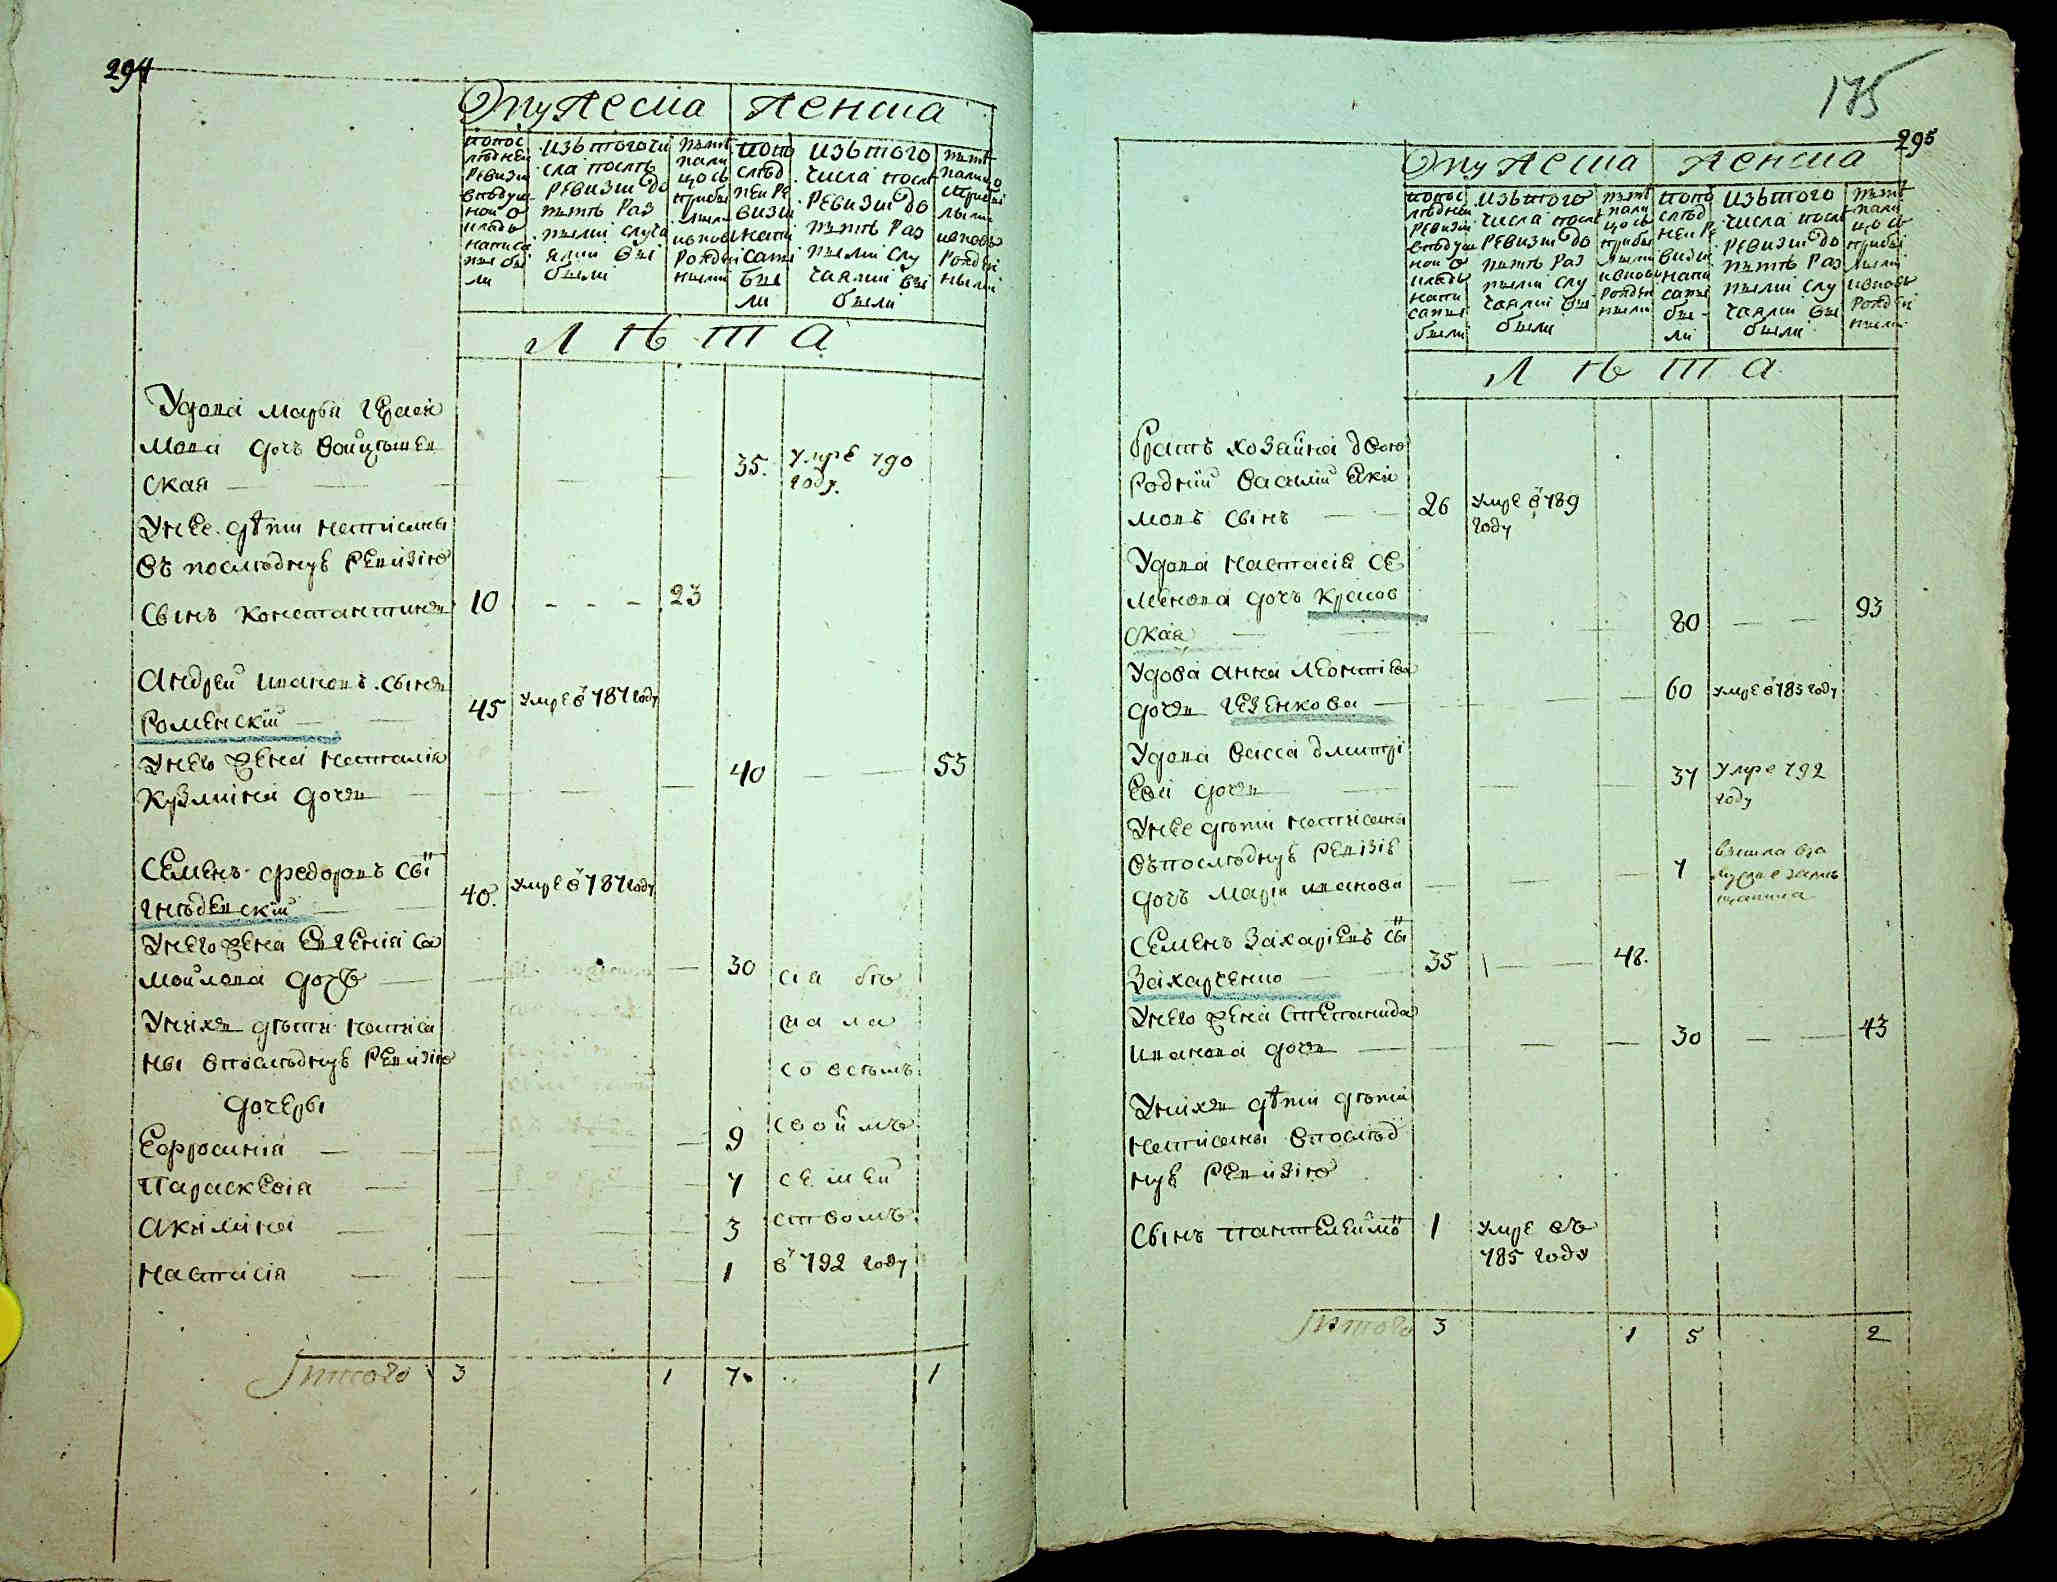 294
Мужеска Женска
попос
лѣдней
ревизи
и
написа
ны бы
ли
изътогочи
сла послѣ
ревизии до
нынѣ раз
ными случа
ями вы
были
нынѣ
нали
цо съ
прибы
лыми
и вновь
рожден
ными
попо
слѣд
ней ре
визи
напи
саны
бы
ли
изътого
числа послѣ
ревизии до
нынѣ раз
ными слу
чаями вы
были
нынѣ
налицо
сприбы
лыми
ивновь
рожден
ными
Лѣта
Удова Марья Гераси
мова дочь Войцышев
ская 35. умре 790
году.
Унее дѣти написаны
въ последнуѣ ревизію
Сынъ Константинъ 10 23
Андрей Ивановъ сынъ
Роменскій 45 умре в 787 году
Унего жена Наталія
Кузмина дочь 40 53
Семенъ Федоровъ сынъ
Гнѣденскій 40. умре в 787 году
Унего жена Евгенія Са
мойлова дочь 30
Унихъ дѣти написа
ны впослѣднуѣ ревизію
дочеры
Ефросинія 9
Параскевія 7
Акилина 3
Настасія 1
сіа бѣ
жала
со всемъ
своимъ
семей
ствомъ
в 792 году
Итого 3 1 7. 1
175
295
Мужеска Женска
попос
лѣдней
ревизи
напи
саны
были
изътого
числа послѣ
ревизии до
нынѣ раз
ными слу
чаями вы
были
нынѣ
нали
цо съ
прибы
лыми
ивновь
рожден
ными
попо
слѣд
ней ре
визи
напи
саны
бы
ли
изътого
числа послѣ
ревизии до
нынѣ раз
ными слу
чаями вы
были
нынѣ
нали
цо съ
прибы
лыми
ивновь
рожден
ными
Лѣта
Братъ хозяйна двою
родній Василій Яки
мовъ сынъ 26 умре в 789
году
Удова Настасія Се
менова дочь Красов
ская 80 93
Удова Анна Леонтіева
дочь Гезенкова 60 умре в 785 году
Удова Васса Дмитрі
ева дочь 37 умре 792
году
Унее дѣти написаны
въпослѣднуѣ ревизіѣ
дочь Марія Иванова 7 вышла вза
мужие
Семенъ Захаріевъ сынъ
Захарченко 35 48.
Унего жена Степанида
Иванова дочь 30 43
Унихъ дѣти дѣти
написаны впослѣд
нуѣ ревизію
Сынъ Пантелеймонъ 1 умре въ
785 году
Итого 3 1 5 2